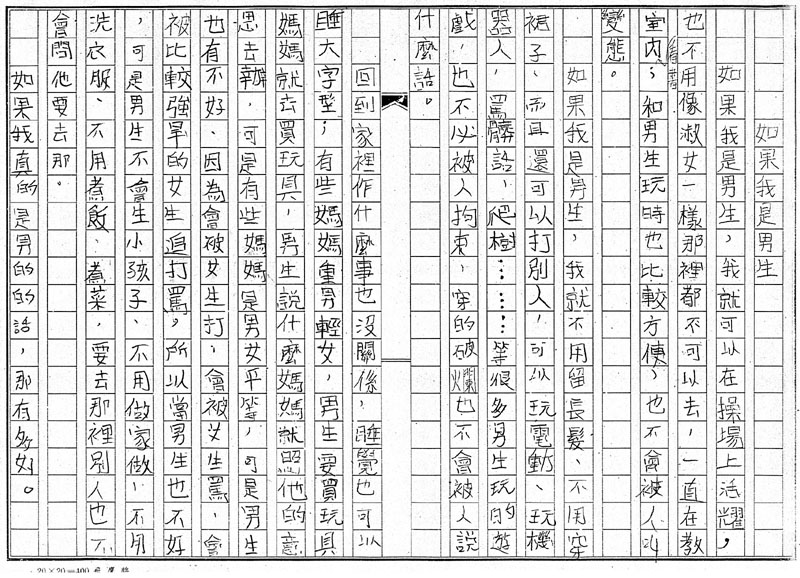 如果我是男生
如果我是男生，我就可以在操場上活耀，
也不用像淑女一樣那裡都不可以去，一直在教
室內看書；和男生玩時也比較方便，也不會被人叫
變態。
如果我是男生，我就不用留長髮、不用穿
裙子、而且還可以打別人，可以玩電動、玩機
器人，罵髒話，爬樹……等很多男生玩的遊
戲，也不必被人拘束，穿的破爛也不會被人說
什麼話。
回到家裡作什麼事也沒關係，睡覺也可以
睡大字型；有些媽媽重男輕女，男生要買玩具
媽媽就去買玩具，男生說什麼媽媽就照他的意
思去辦，可是有些媽媽是男女平等，可是男生
也有不好、因為會被女生打，會被女生罵，會
被比較強旱的女生追打罵。所以當男生也不好
，可是男生不會生小孩子、不用做家做，不用
洗衣服、不用煮飯、煮菜，要去那裡別人也不
會問他要去那。
如果我真的是男的的話，那有多好。
20×20=400